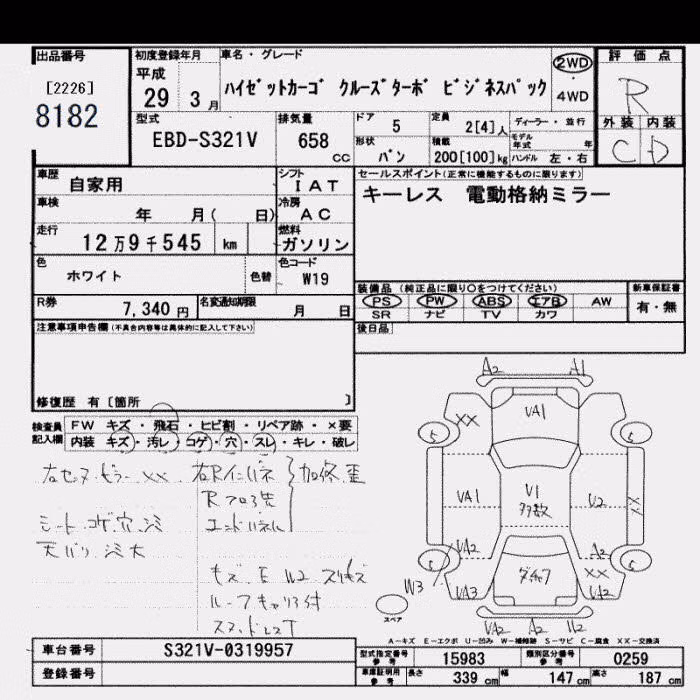 出品番号
[2226]
8182
初度登録年月
平成
29 3月
車名・グレード
ﾊｲｾﾞｯﾄｶｰｺﾞ ｸﾙｰｽﾞﾀｰﾎﾞ ﾋﾞｼﾞﾈｽﾊﾟｯｸ
2WD
4WD
評価点
R
外装 内装
C D
型式
EBD-S321V
排気量
658 cc
ドア 5
定員 2[4]人
ディーラー・並行
形状 バン
積載 200[100]kg
モデル年式 年
ハンドル 左・右
車歴 自家用
シフト IAT
セールスポイント(正常に機能するものに限ります)
キーレス 電動格納ミラー
車検 年 月( 日)
冷房 AC
走行 12万9千545 km
燃料 ガソリン
色 ホワイト
色替
色コード W19
装備品 (純正品に限り○をつけてください)
新車保証書
PS PW ABS エアB AW
有・無
SR ナビ TV カワ
R券 7,340円
名変通知期限 月 日
後日品
注意事項申告欄(不具合内容等は具体的に記入して下さい)
修復歴 有〔箇所 〕
検査員記入欄
FW キズ・飛石・ヒビ割・リペア跡・×要
内装 キズ・汚レ・コゲ・穴・スレ・キレ・破レ
シート コゲ 穴
A2 A1
XX
VA1
5 5
VA1
V1
多数
U2
XX
VA2
A2
XX
5 5
VA3
VA2
W3
スペア
VA2 A2 W2
A-キズ E-エクボ U-凹み W-補修跡 S-サビ C-腐食 XX-交換済
車台番号 S321V-0319957
登録番号
型式指定番号 参考 15983
類別区分番号 参考 0259
車庫証明用 参考 長さ 339cm 幅 147cm 高さ 187cm